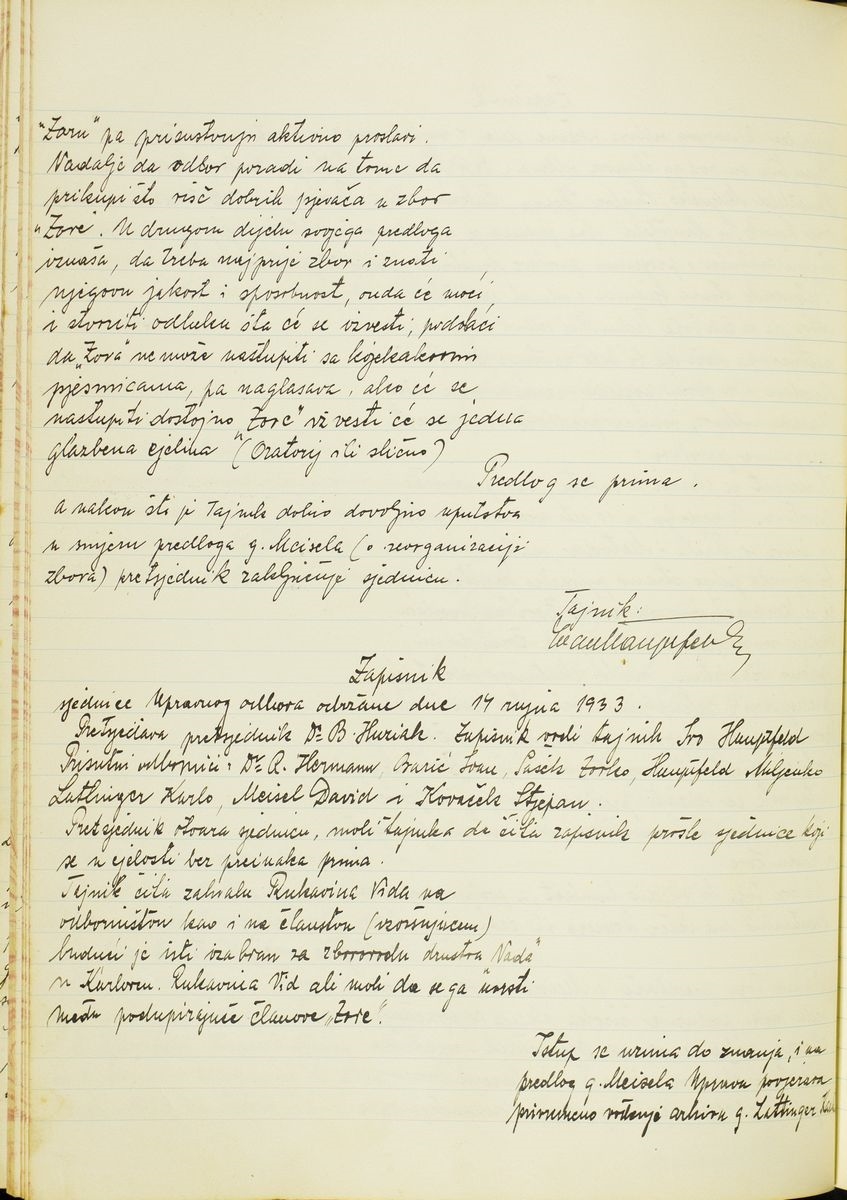 "Zoru" pa prisustvuju aktivno proslavi.
Nadalje da odbor poradi na tome da
prikupi što više dobrih pjevača u zbor
"Zore". U drugom dijelu svojega predloga
iznaša, da treba najprije zbor i znati
njegovu jakost i sposobnost, onda će moći,
i stvoriti odluku šta će se izvesti, podvlači
da "Zora" ne može nastupiti sa kojekakovim
pjesmicama, pa naglasava, ako će se
nastupiti dostojno "Zore" izvesti će se jedna
glazbena cjelina (Oratorij ili slično)
Predlog se prima.
a nakon što je Tajnik dobio dovoljno uputstva
u smjeru predloga g. Meisela (o reorganizaciji
zbora) pretsjednik zaključuje sjednicu.
Tajnik:
Zapisnik
sjednice Upravnog odbora održane dne 14 rujna 1933.
Pretsjedava pretsjednik Dr. B. Huziak. Zapisnik vodi tajnik Ivo Hauptfeld
Prisutni odbornici: Dr. R. Hermann, Barić Ivan, Šašek Zorko, Hauptfeld Miljenko
Lattinger Karlo, Meisel David i Kovaček Stjepan.
Pretsjednik otvara sjednicu, moli tajnika da čita zapisnik prošle sjednice koji
se u cjelosti bez preinaka prima.
Tajnik čita zahvalu Rukavina Vida na
odborništvu kao i na članstvu (izvršujućem)
budući je isti izabran za zborovodu društva "Nada"
u Karlovcu. Rukavina Vid ali moli da se ga uvrsti
među podupirajuće članove "Zore".
Istup se uzima do znanja, i na
predlog g. Meisela Uprava povjerava
privremeno vođenje arhiva g. Lattinger